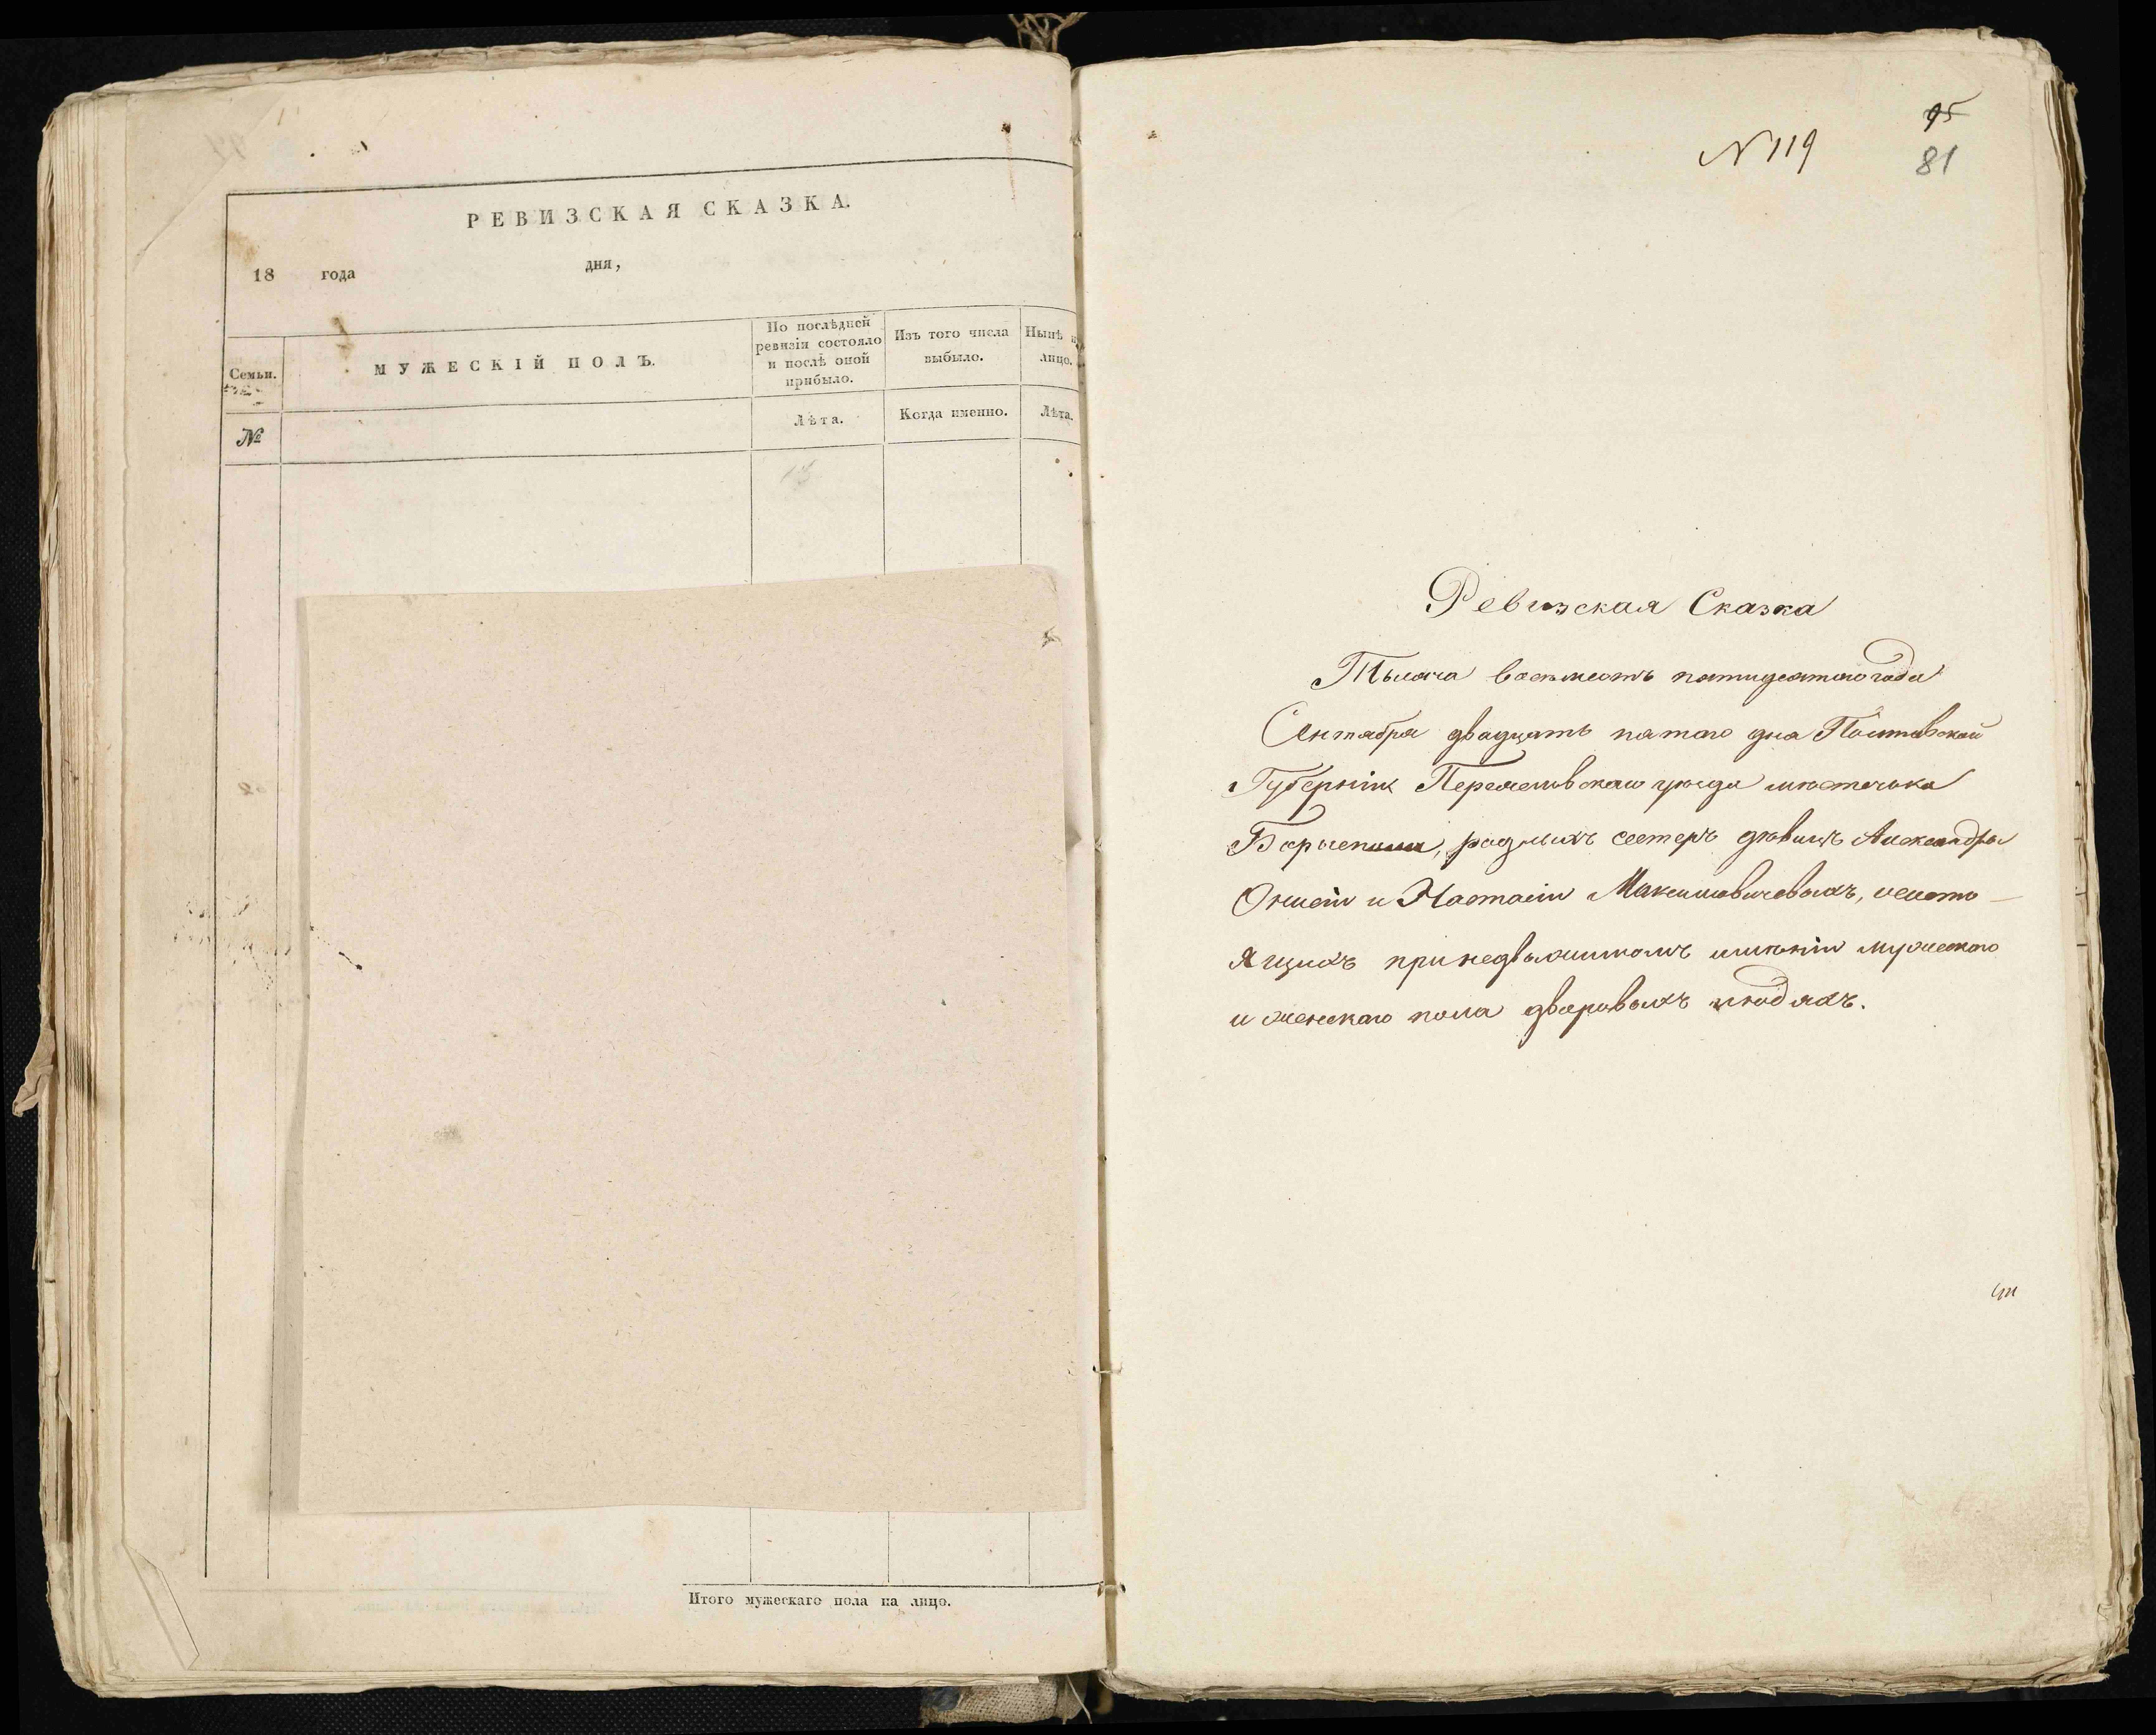 РЕВИЗСКАЯ СКАЗКА.
18 года дня,
Семьи.
МУЖЕСКІЙ ПОЛЪ.
По послѣдней
ревизіи состояло
и послѣ оной
прибыло.
Изъ того числа
выбыло.
Нынѣ н
лицо.
№
Лѣта.
Когда именно.
Лѣта.
Итого мужескаго пола на лицо.
N 119
95
81
Ревизская Сказка
Тысяча восемьсотъ пятидесятого года
Сентября двадцать пятого дня Полтавской
Губерніи Переяславскаго уѣзда мѣстечка
Борисполя, родныхъ сестеръ дѣвицъ Александры
и Настасіи Максимовичевыхъ, несосто
ящихъ при недвижимомъ имѣніи мужескаго
и женскаго пола дворовыхъ людяхъ.